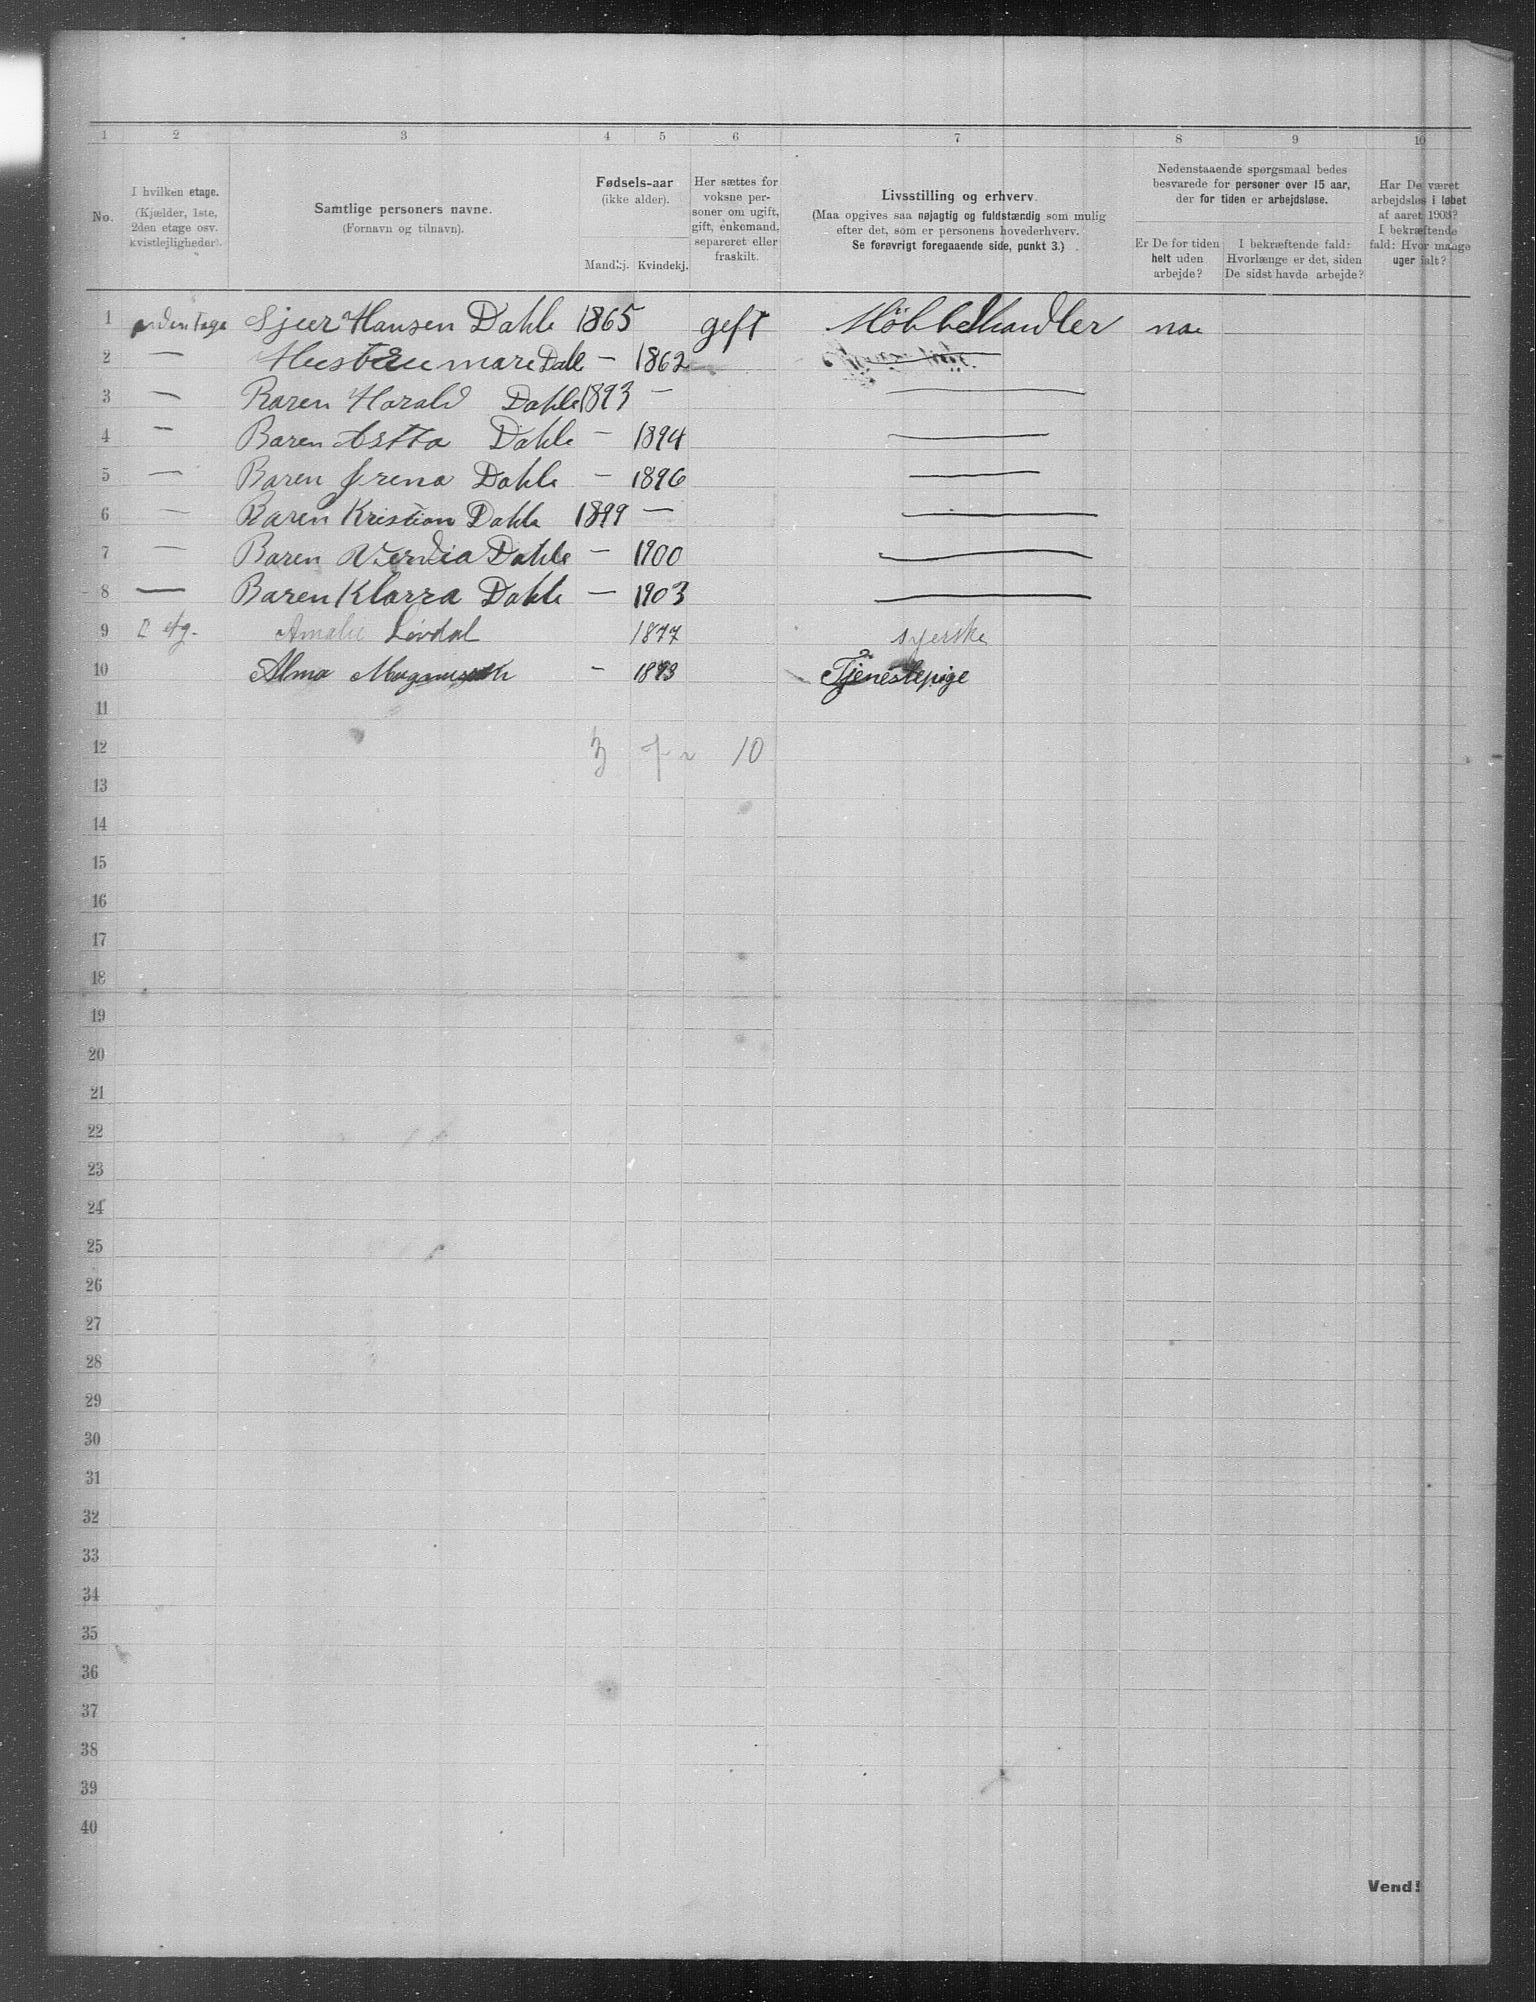 1 2 3 4 5 6 7 8 9 10
No.
I hvilken etage.
(Kjælder, 1ste,
2den etage osv.
kvistlejligheder).
Samtlige personers navne.
(Fornavn og tilnavn).
Fødsels-aar
(ikke alder).
Mandkj. Kvindekj.
Her sættes for
voksne per-
soner om ugift,
gift, enkemand,
separeret eller
fraskilt.
Livsstilling og erhverv.
(Maa opgives saa nøjagtig og fuldstændig som mulig
efter det, som er personens hovederhverv.
Se forøvrigt foregaaende side, punkt 3.)
Nedenstaaende spørgsmaal bedes
besvarede for personer over 15 aar,
der for tiden er arbejdsløse.
Er De for tiden
helt uden
arbejde?
I bekræftende fald:
Hvorlænge er det, siden
De sidst havde arbejde?
Har De været
arbejdsløs i løbet
af aaret 1903?
I bekræftende
fald: Hvor mange
uger ialt?
1 Sjur Hansen Dahle 1865 geft Møbbelhandler na
2 — mare Dale — 1862
3 — Baren Harald Dahle 1893 — —
4 — Baren Astta Dahle — 1894 —
5 — Baren Jrena Dahle — 1896 —
6 — Baren Kristian Dahle 1899 — —
7 — Baren Dahle — 1900 —
8 — Baren Klarra Dahle — 1903 —
9 etg. Amalie Løvdal 1877 syerske
10 Alma — 1883 Tjenestepige
11
12 3 7 10
13
14
15
16
17
18
19
20
21
22
23
24
25
26
27
28
29
30
31
32
33
34
35
36
37
38
39
40
Vend!